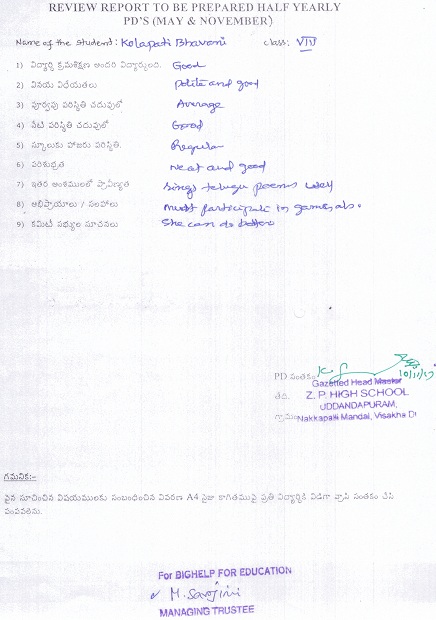 REVIEW REPORT TO BE PREPARED HALF YEARLY
PD'S (MAY & NOVEMBER)
Name of the student: Kolapati Bhavani Class: VIII
1) విద్యార్థి క్రమశిక్షణ అందరి విద్యార్థులది. Good
2) వినయ విధేయతలు Polite and good
3) పూర్వపు పరిస్థితి చదువులో Average
4) నేటి పరిస్థితి చదువులో Good
5) స్కూలుకు హాజరు పరిస్థితి. Regular
6) పరిశుభ్రత Neat and good
7) ఇతర అంశములలో ప్రావీణ్యత Sings telugu poems well
8) అభిప్రాయాలు / సలహాలు must participate in games also.
9) కమిటీ సభ్యుల సూచనలు She can do better
PD సంతకం 10/11/17
Gazetted Head Master
తేది. Z. P. HIGH SCHOOL
UDDANDAPURAM,
గ్రామం Nakkapalli Mandal, Visakha Dt
గమనిక:-
పైన సూచించిన విషయములకు సంబంధించిన వివరణ A4 సైజు కాగితముపై ప్రతి విద్యార్థికి విడిగా వ్రాసి సంతకం చేసి
పంపవలెను.
For BIGHELP FOR EDUCATION
M. Sarojini
MANAGING TRUSTEE